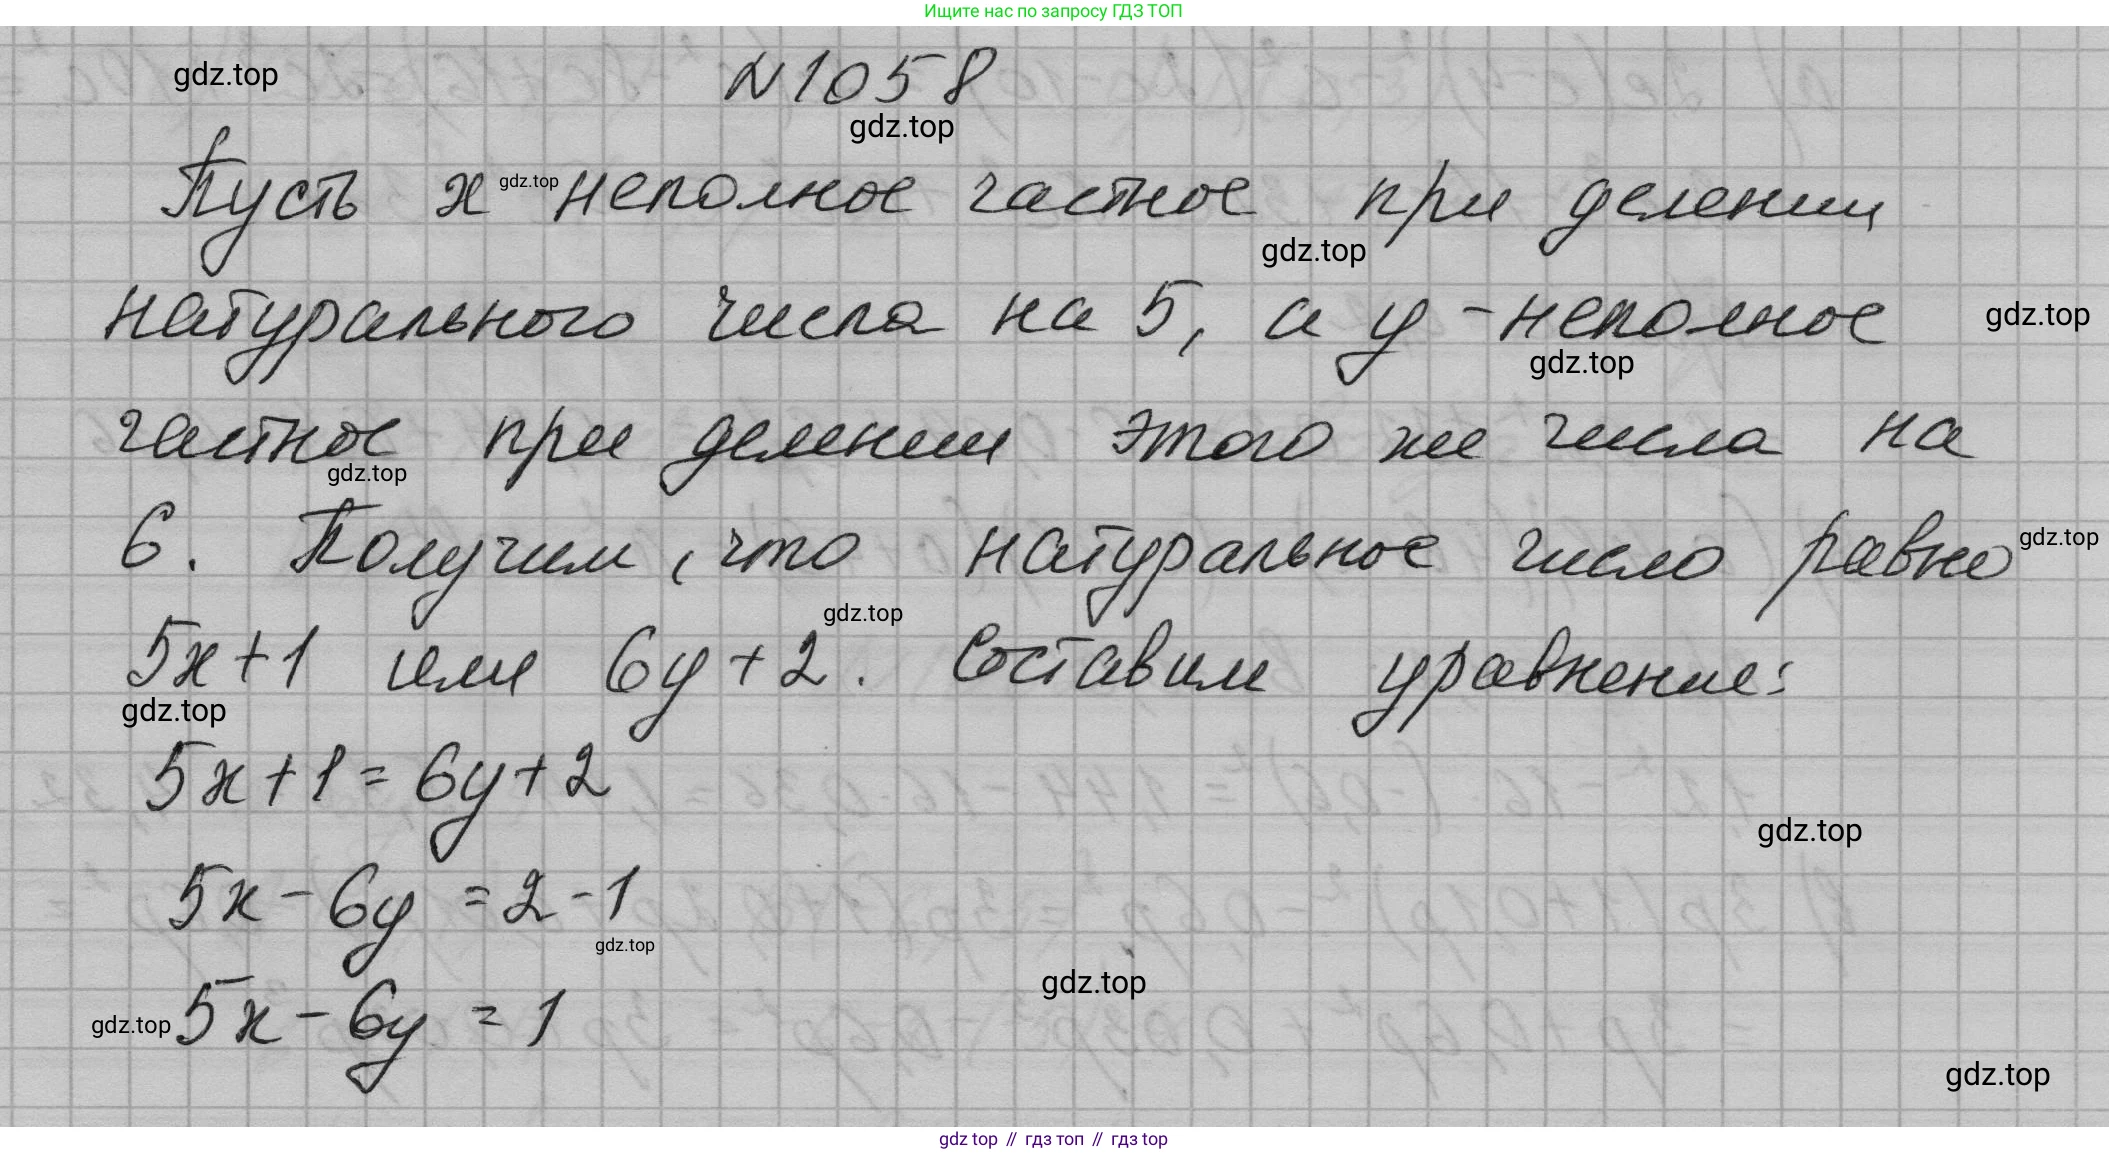 Ищите нас по запросу ГДЗ ТОП
N1058
gdz.top
gdz.top
Пусть x gdz.top неполное частное при делении
gdz.top
натурального числа на 5, а y - неполное
gdz.top
gdz.top
частное при делении этого же числа на
gdz.top
6. Получим, что натуральное число равно
gdz.top
gdz.top
5x+1 или 6y+2. Составим уравнение:
gdz.top
5x+1=6y+2
gdz.top
5x-6y=2-1
gdz.top
gdz.top
gdz.top 5x-6y=1
gdz.top
gdz top // гдз топ // гдз top